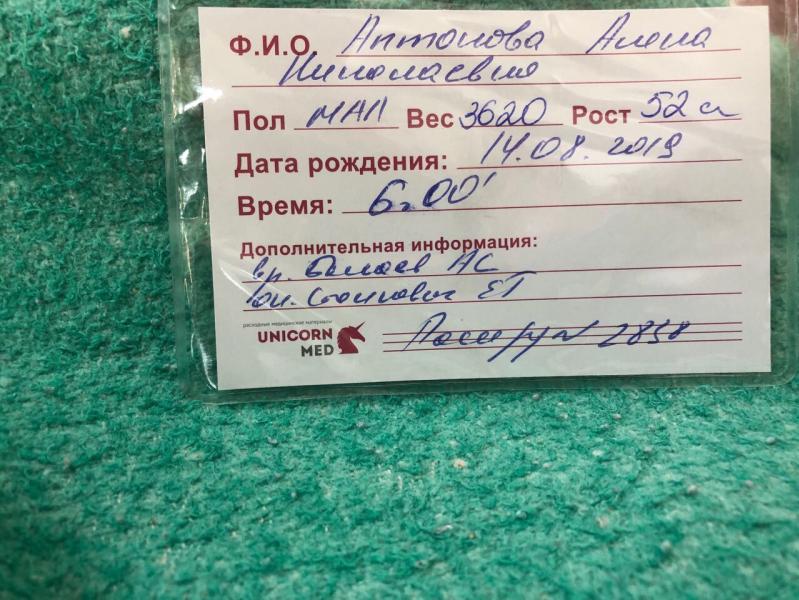 Ф.И.О. Антонова Алена
Николаевна
Пол мал Вес 3620 Рост 52 см
Дата рождения: 14.08.2019
Время: 6.00'
Дополнительная информация:
вр. АС
ЕГ
расходные медицинские материалы
UNICORN
MED
2858